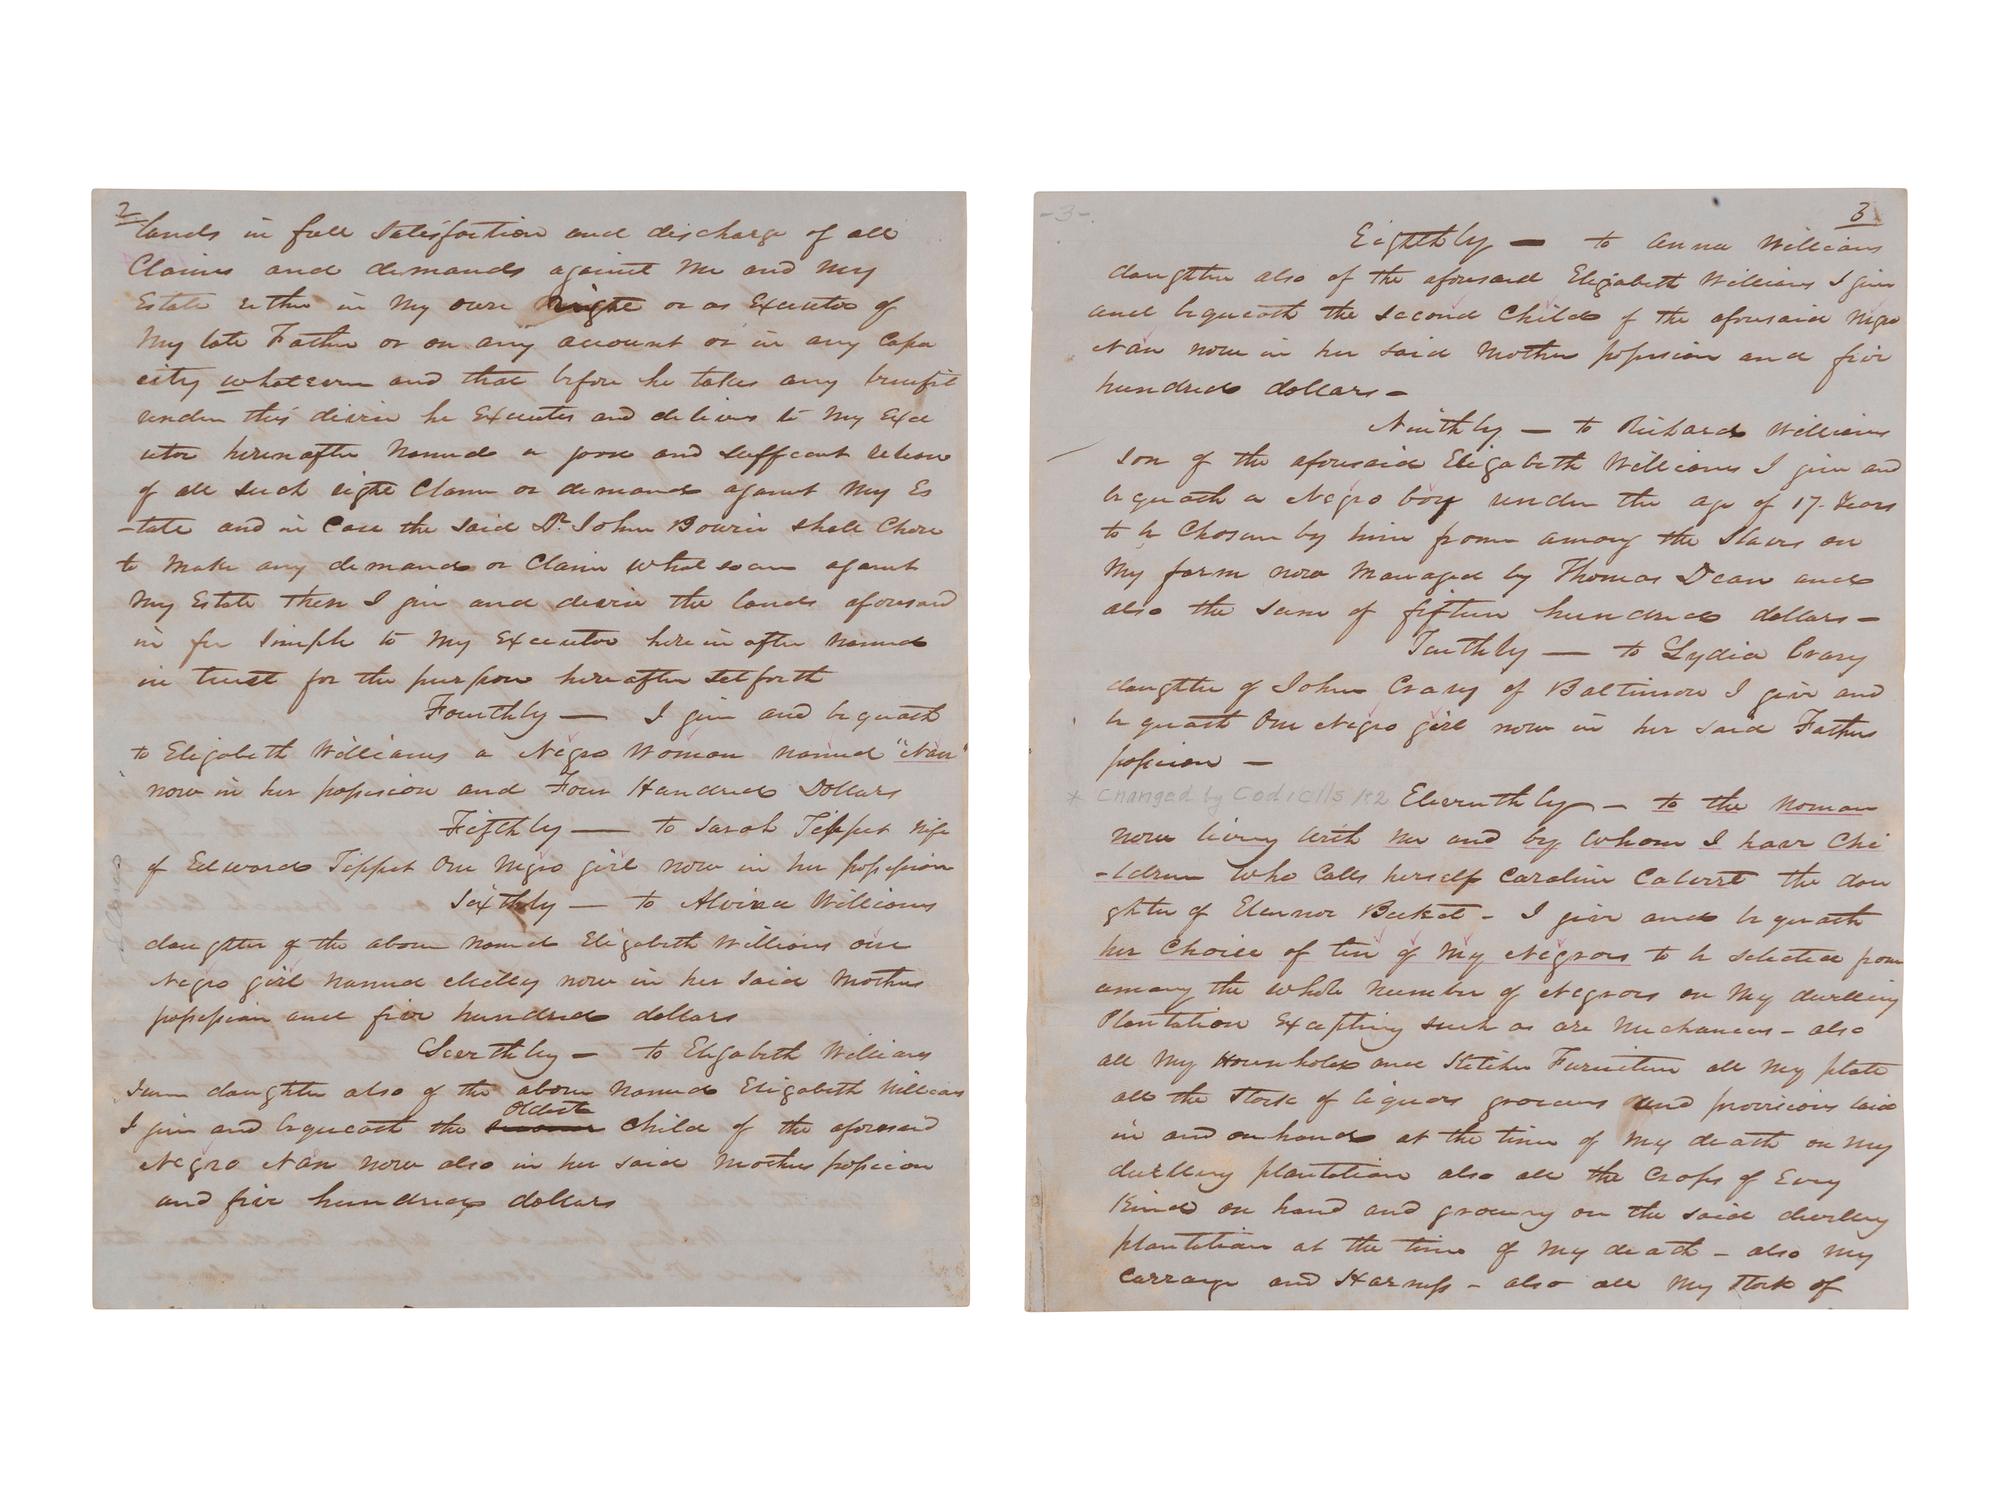 2
lands in full Satisfaction and discharge of all
Claims and demands against Me and My
Estate either in My own right or as Executor of
My late Father or on any account or in any Capa
city whatever and that before he takes any benefit
under this devise he Executes and delivers to My Exe
utor hereinafter Named a good and sufficent release
of all such right Claim or demand against My Es
-tate and in Case the said Dr. John Bowie shall Chose
to Make any demand or Claim whatsoever against
My Estate then I give and devise the lands aforesaid
in fee Simple to My Executor herein after Named
in trust for the purpose hereafter Setforth
Fourthly — I give and bequeath
to Elizabeth Williams a Negro Woman named "Nan"
now in her possession and Four Hundred Dollars
Fifthly — to Sarah Tippet wife
of Edward Tippet One Negro girl now in her possession
Sixthly — to Alvina Williams
daughter of the above named Elizabeth Williams one
Negro girl named Milly now in her said Mothers
possession and five hundred dollars
Seventhly — to Elizabeth Williams
Jun daughter also of the above Named Elizabeth Williams
Oldest
I give and bequeath the Child of the aforesaid
Negro Nan now also in her said Mothers possession
and five hundred dollars
Slaves
-3-.
3
Eighthly — to Anna Williams
daughter also of the aforesaid Elizabeth Williams I give
and bequeath the Second Child of the aforesaid Negro
Nan now in her said Mothers possession and five
hundred dollars —
Ninthly — to Richard Williams
son of the aforesaid Elizabeth Williams I give and
bequeath a Negro boy under the age of 17 Years
to be Chosen by him from among the Slaves on
My farm now Managed by Thomas Dean and
also the sum of fifteen hundred dollars —
Tenthly — to Lydia Crary
daughter of John Crary of Baltimore I give and
bequeath One Negro girl now in her said Fathers
possession —
* Changed by Codicils 1 & 2 Eleventhly — to the Woman
now living with me and by whom I have Chi
-ldren who Calls herself Caroline Calvert the dau
ghter of Eleanor Becket - I give and bequeath
her Choice of ten of My Negroes to be selected from
among the whole Number of Negroes on My dwelling
Plantation Excepting such as are Mechanics - also
all My Household and Kitchen Furniture all My plate
all the Stock of liquors groceries and provisions laid
in and on hand at the time of My death on My
dwelling plantation also all the Crops of Every
Kind on hand and growing on the said dwelling
plantation at the time of My death - also My
Carriage and Harness - also all My Stock of